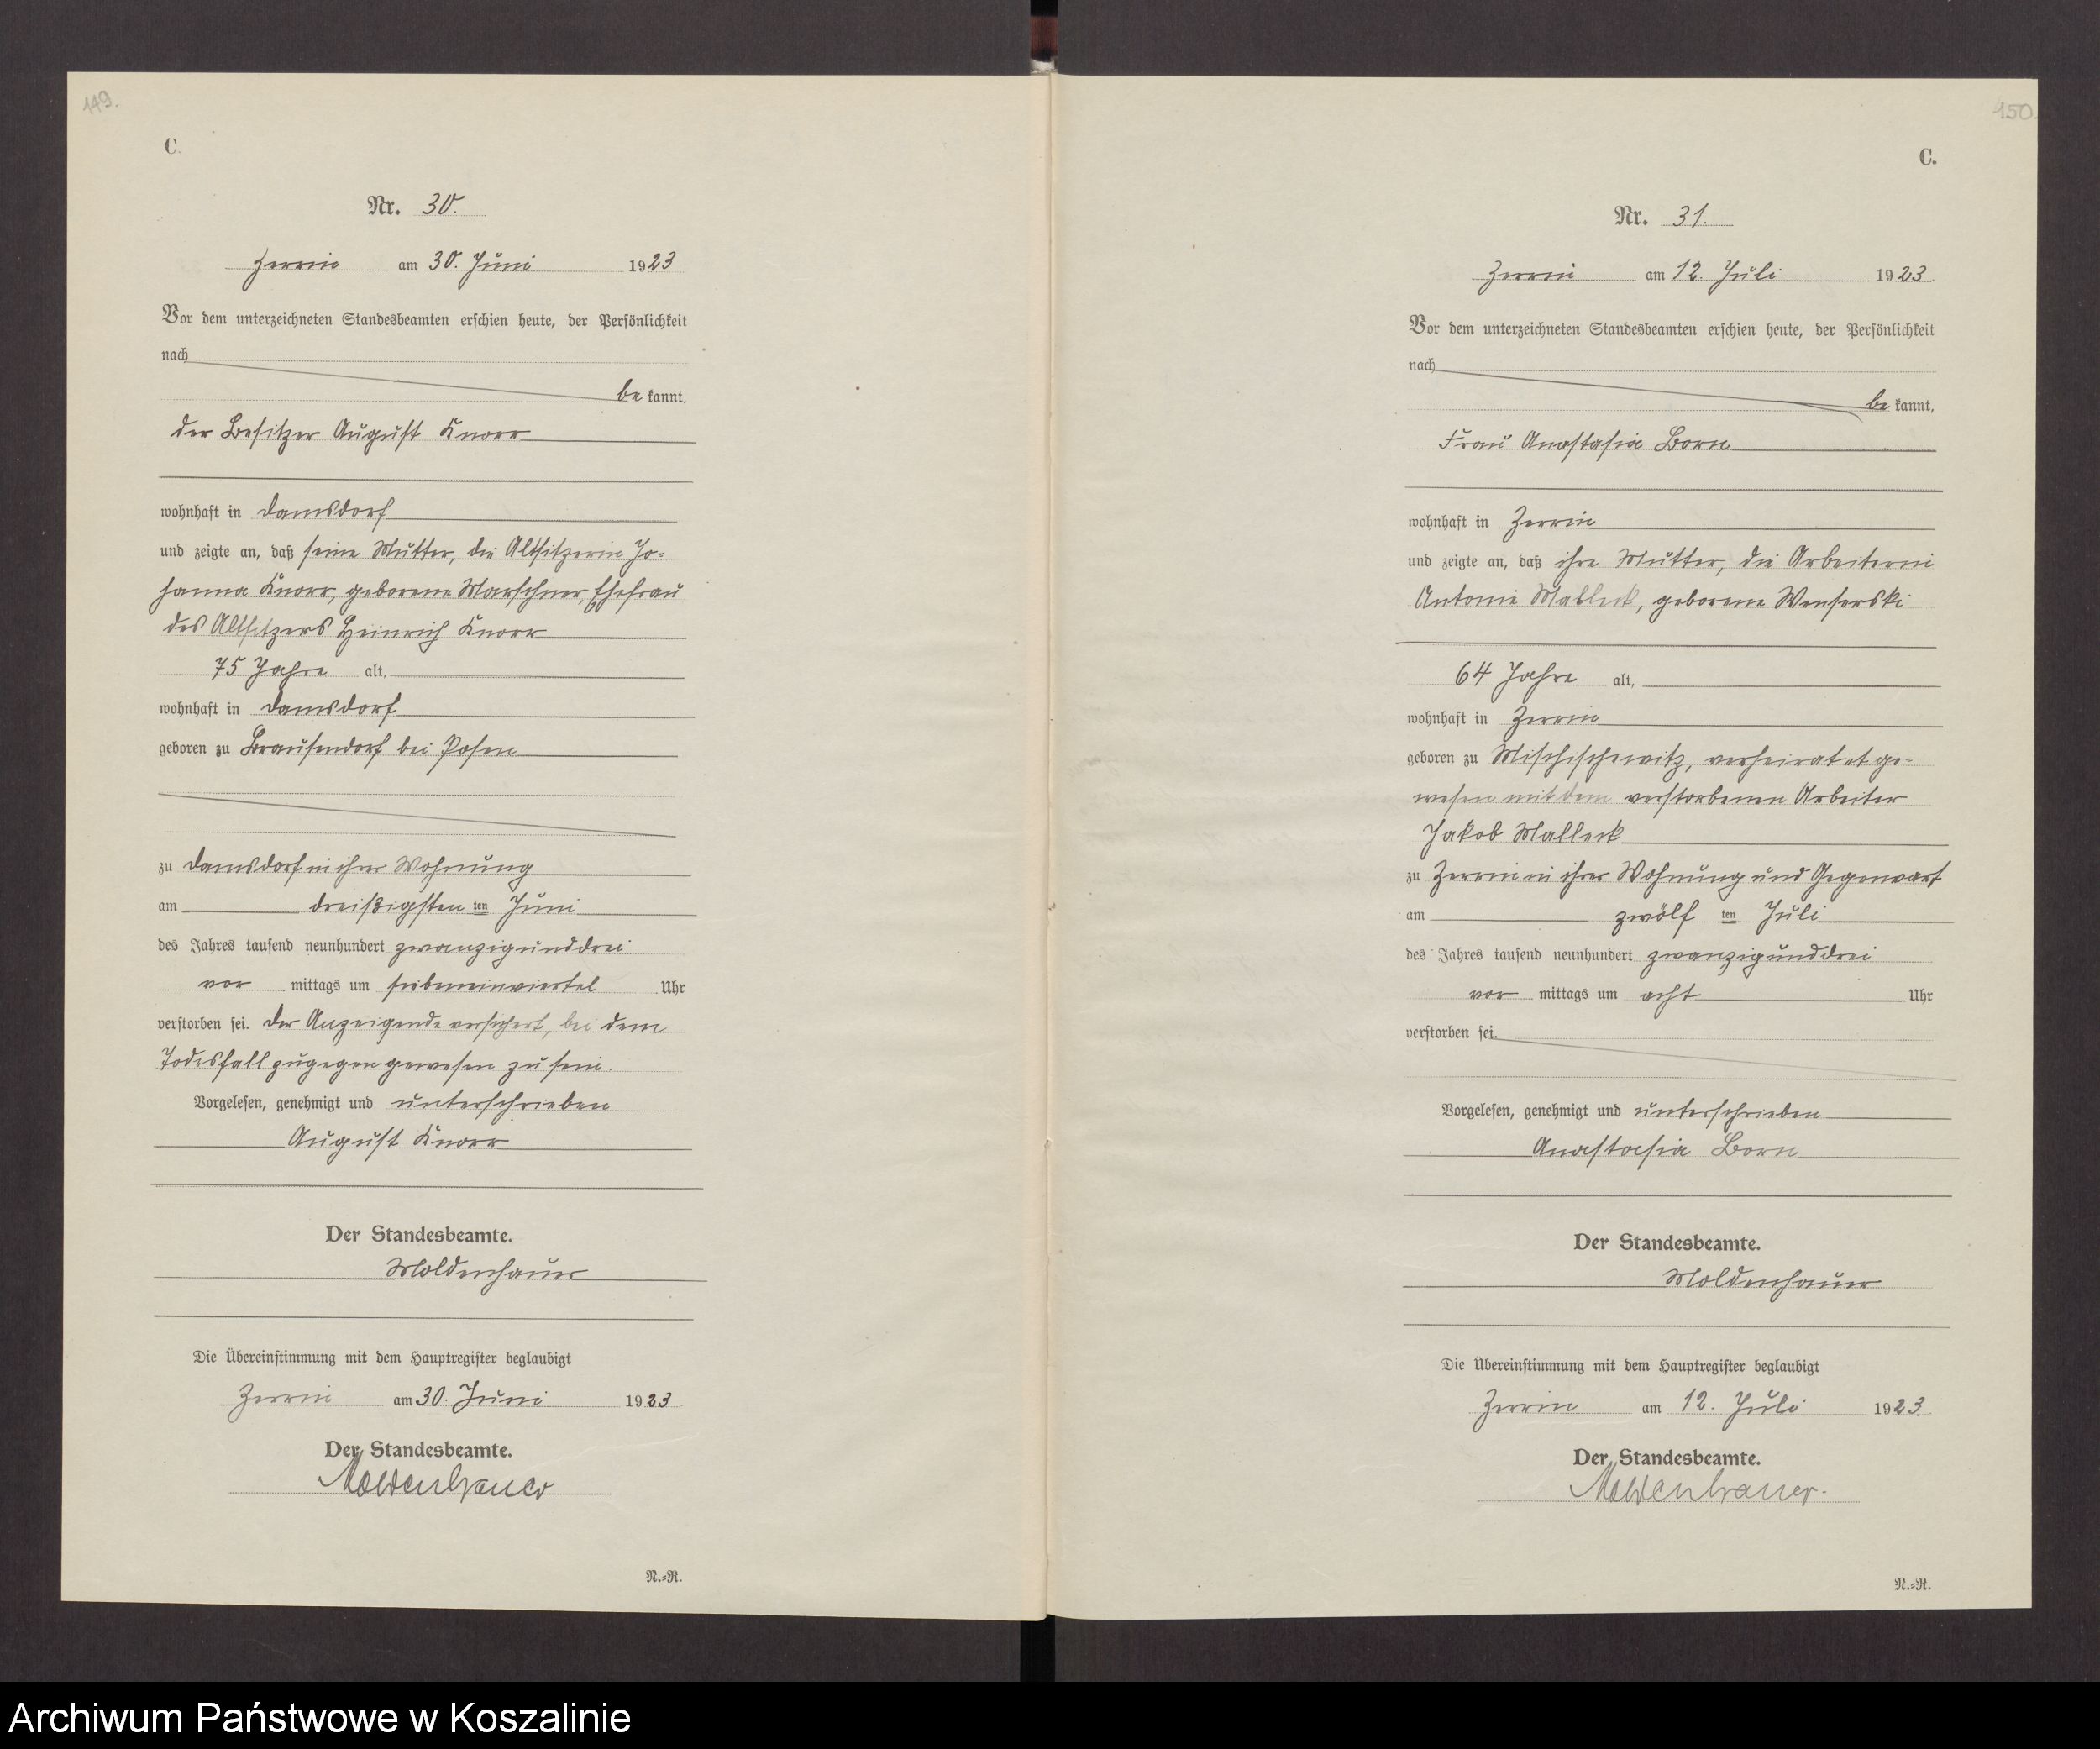 149.
C.
Nr. 30.
Zerrin am 30. Juni 1923
Vor dem unterzeichneten Standesbeamten erschien heute, der Persönlichkeit
nach
be kannt,
der Besitzer August Knorr
wohnhaft in Damsdorf
und zeigte an, daß seine Mutter, die Altsitzerin Jo-
hanna Knorr, geborene Marschner, Ehefrau
des Altsitzers Heinrich Knorr
75 Jahre alt,
wohnhaft in Damsdorf
geboren zu Brausendorf bei Posen
zu Damsdorf in ihrer Wohnung
am dreißigsten ten Juni
des Jahres tausend neunhundert zwanzigunddrei
vor mittags um siebeneinviertel Uhr
verstorben sei. Der Anzeigende versichert, bei dem
Todesfall zugegen gewesen zu sein.
Vorgelesen, genehmigt und unterschrieben
August Knorr
Der Standesbeamte.
Moldenhauer
Die Übereinstimmung mit dem Hauptregister beglaubigt
Zerrin am 30. Juni 1923
Der Standesbeamte.
Moldenhauer
N.=R.
150.
C.
Nr. 31.
Zerrin am 12. Juli 1923
Vor dem unterzeichneten Standesbeamten erschien heute, der Persönlichkeit
nach
be kannt,
Frau Anastasia Born
wohnhaft in Zerrin
und zeigte an, daß ihre Mutter, die Arbeiterin
Antonie Malleck, geborene Wenserski
64 Jahre alt,
wohnhaft in Zerrin
geboren zu Mischischewitz, verheiratet ge-
wesen mit dem verstorbenen Arbeiter
Jakob Malleck
zu Zerrin in ihrer Wohnung und Gegenwart
am zwölf ten Juli
des Jahres tausend neunhundert zwanzigunddrei
vor mittags um acht Uhr
verstorben sei.
Vorgelesen, genehmigt und unterschrieben
Anastasia Born
Der Standesbeamte.
Moldenhauer
Die Übereinstimmung mit dem Hauptregister beglaubigt
Zerrin am 12. Juli 1923
Der Standesbeamte.
Moldenhauer.
N.=R.
Archiwum Państwowe w Koszalinie